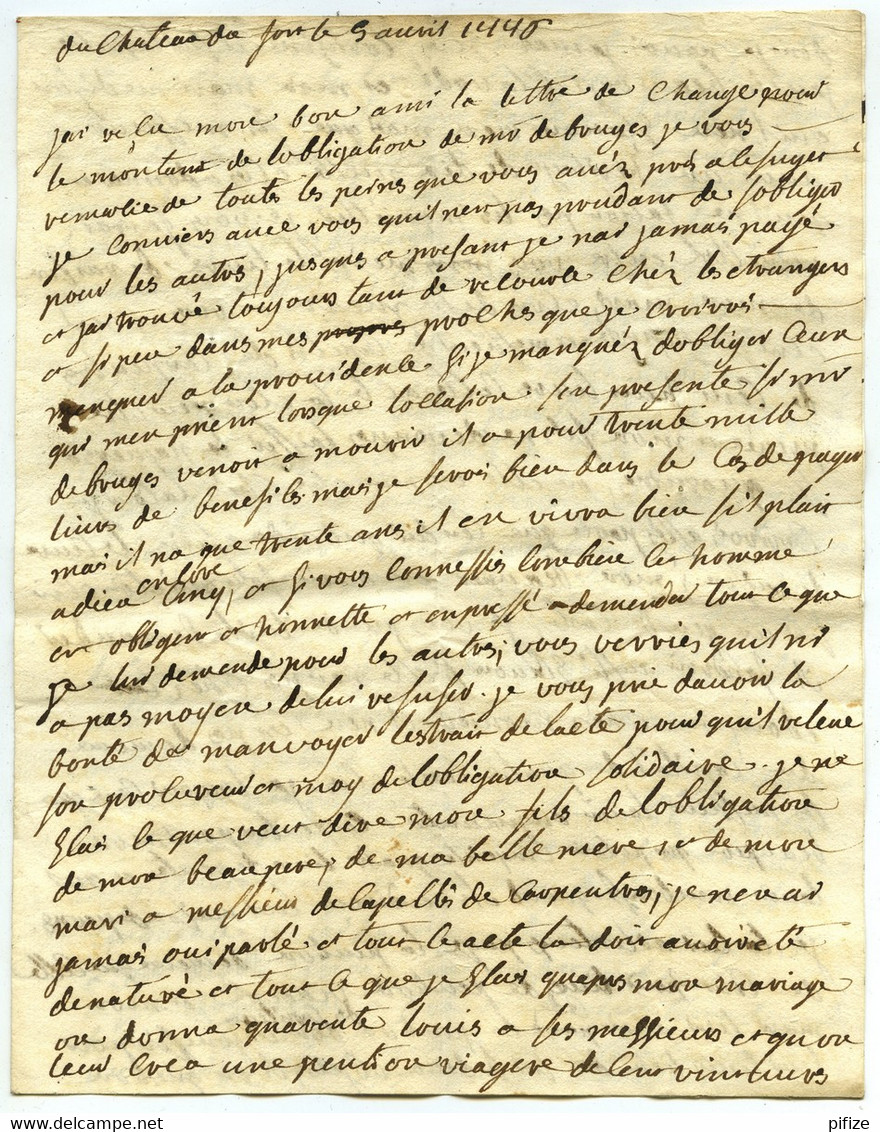 du Chateau du fort le 5 avril 1776
jai reçu mon bon ami la lettre de change pour
le montant de lobligation de mr de bruges je vous
remercie de toutes les peines que vous avéz pris a le sujet
je conviens avec vous quil nest pas prudant de sobliger
pour les autres, jusques a presant je nai jamais payé
et jai trouvé toujours tant de recource chéz les etrangers
et si peu dans mes proches que je croirois
menquer a la providence si je manquéz dobliger ceux
qui men prient lorsque loccasion sen presente si mr
de bruges venoit a mourir il a pour trente mille
livres de benefices mais je serois bien dans le cas de payer
mais il na que trente ans il en vivra bien sil plait
a dieu encore cinq, et si vous connessies combien cet homme
est obligent et honnette et enpressé a demender tout ce que
je lui demende pour les autres, vous verries quil ni
a pas moyen de lui refuser. je vous prie davoir la
bonté de manvoyer lestrait de lacte pour quil releve
son procureur et moy de lobligation solidaire. je ne
sçais ce que veut dire mon fils de lobligation
de mon beau pere, de ma belle mere, et de mon
mari a messieurs de Capellis de Carpentras, je nen ai
jamais oui parlé et tout ce acte la doit avoir eté
denaturé et tout ce que je sçais quapres mon mariage
on donna quarente louis a ses messieurs et quon
leur crea une pention viagere de cent vint